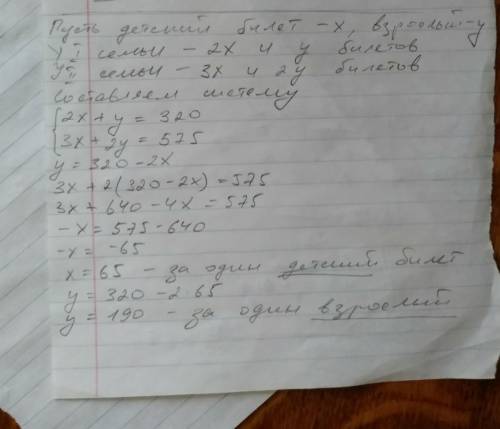 Пусть детский билет - x, взрослый - y
У I семьи - 2x и y билетов
У II семьи - 3x и 2y билетов
Составляем систему
2x + y = 320
3x + 2y = 575
y = 320 - 2x
3x + 2(320 - 2x) = 575
3x + 640 - 4x = 575
-x = 575 - 640
-x = -65
x = 65 - за один детский билет
y = 320 - 2·65
y = 190 - за один взрослий